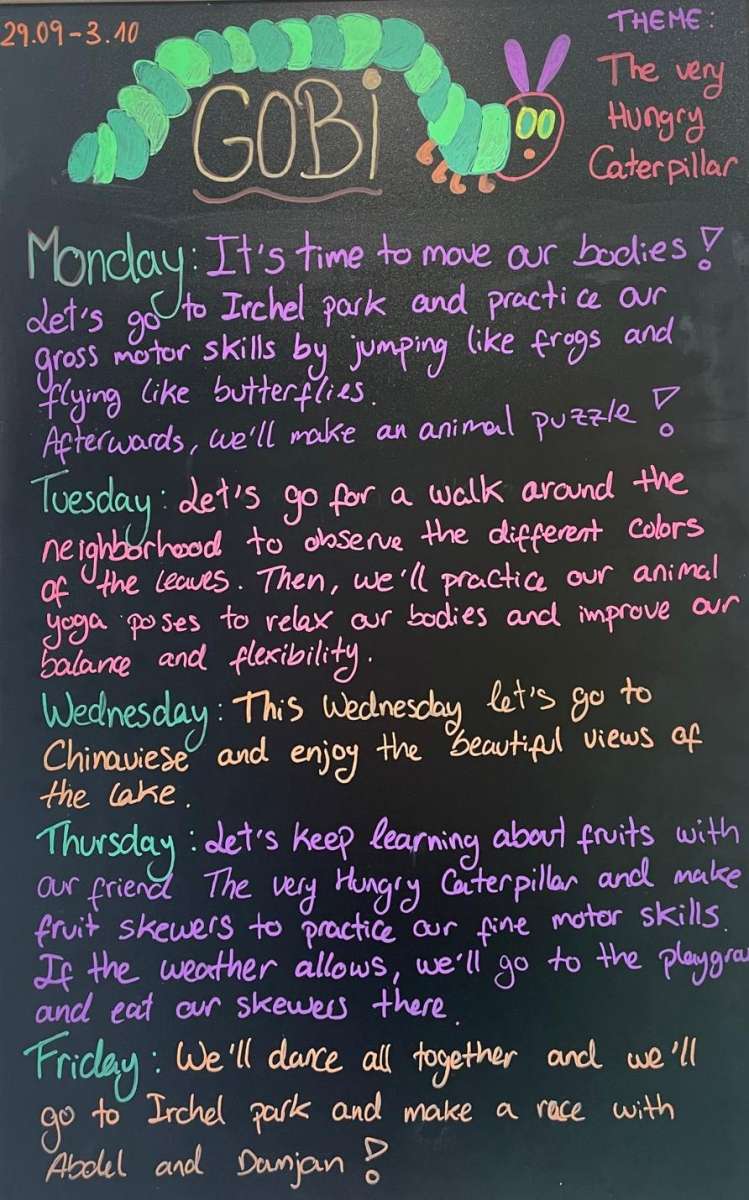 29.09-3.10
GOBi
THEME:
The very
Hungry
Caterpillar
Monday: It's time to move our bodies!
Let's go to Irchel park and practice our
gross motor skills by jumping like frogs and
flying like butterflies.
Afterwards, we'll make an animal puzzle!
Tuesday: Let's go for a walk around the
neighborhood to observe the different colors
of the leaves. Then, we'll practice our animal
yoga poses to relax our bodies and improve our
balance and flexibility.
Wednesday: This Wednesday let's go to
Chinawiese and enjoy the beautiful views of
the lake.
Thursday: Let's keep learning about fruits with
our friend The very Hungry Caterpillar and make
fruit skewers to practice our fine motor skills.
If the weather allows, we'll go to the playgro
and eat our skewers there.
Friday: We'll dance all together and we'll
go to Irchel park and make a race with
Abdel and Damjan!